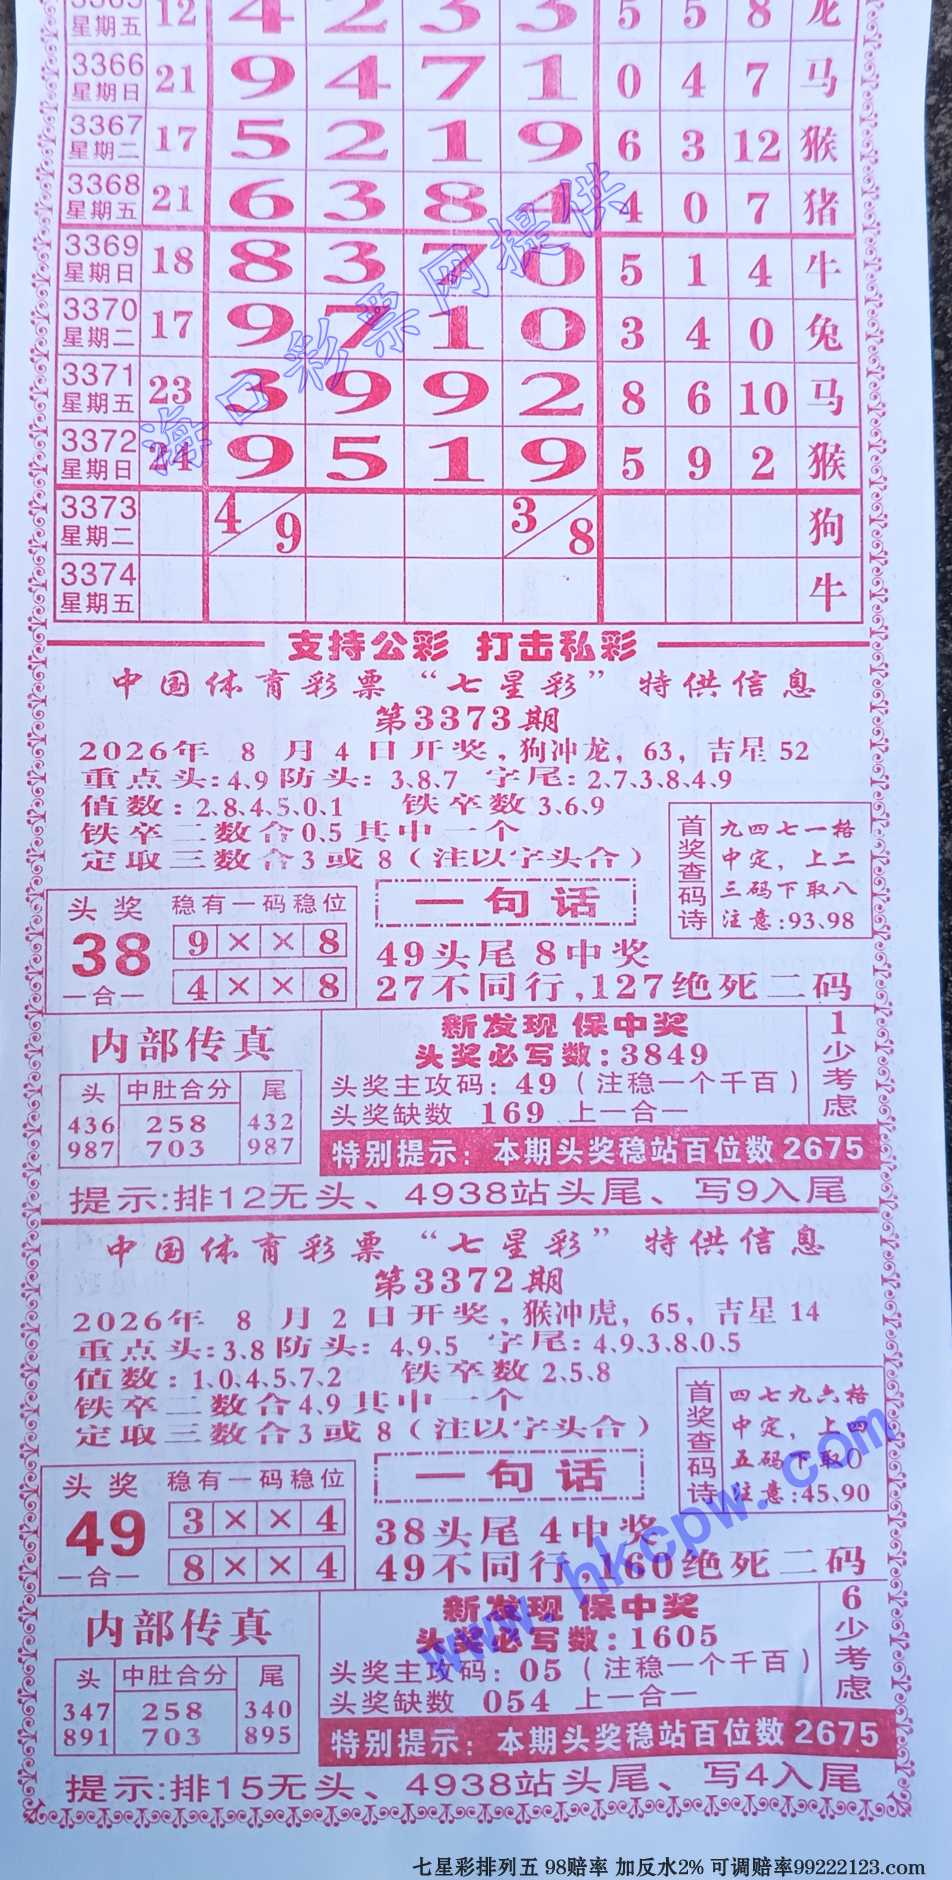 3365 12 4 2 3 3 5 5 8 龙
星期五
3366 21 9 4 7 1 0 4 7 马
星期日
3367 17 5 2 1 9 6 3 12 猴
星期二
3368 21 6 3 8 4 4 0 7 猪
星期五
3369 18 8 3 7 0 5 1 4 牛
星期日
3370 17 9 7 1 0 3 4 0 兔
星期二
3371 23 3 9 9 2 8 6 10 马
星期五
3372 24 9 5 1 9 5 9 2 猴
星期日
3373 4/9 3/8 狗
星期二
3374 牛
星期五
海口彩票网提供
支持公彩 打击私彩
中国体育彩票“七星彩”特供信息
第3373期
2026年 8 月 4 日开奖,狗冲龙,63,吉星52
重点头:4.9防头:3.8.7 字尾:2.7.3.8.4.9
值数:2.8.4.5.0.1 铁卒数3.6.9
铁卒二数合0.5其中一个
定取三数合3或8(注以字头合)
首奖查码诗
九四七一格
中定,上二
三码下取八
注意:93.98
头奖
38
一合一
稳有一码稳位
9××8
4××8
一句话
49头尾8中奖
27不同行,127绝死二码
内部传真
头 中肚合分 尾
436 258 432
987 703 987
新发现 保中奖
头奖必写数:3849
头奖主攻码:49(注稳一个千百)
头奖缺数 169 上一合一
1少考虑
特别提示:本期头奖稳站百位数2675
提示:排12无头、4938站头尾、写9入尾
中国体育彩票“七星彩”特供信息
第3372期
2026年 8 月 2 日开奖,猴冲虎,65,吉星14
重点头:3.8防头:4.9.5 字尾:4.9.3.8.0.5
值数:1.0.4.5.7.2 铁卒数2.5.8
铁卒二数合4.9其中一个
定取三数合3或8(注以字头合)
首奖查码诗
四七九六格
中定,上四
五码下取0
注意:45.90
头奖
49
一合一
稳有一码稳位
3××4
8××4
一句话
38头尾4中奖
49不同行,160绝死二码
www.hkcpw.com
内部传真
头 中肚合分 尾
347 258 340
891 703 895
新发现 保中奖
头奖必写数:1605
头奖主攻码:05(注稳一个千百)
头奖缺数 054 上一合一
6少考虑
特别提示:本期头奖稳站百位数2675
提示:排15无头、4938站头尾、写4入尾
七星彩排列五 98赔率 加反水2% 可调赔率99222123.com